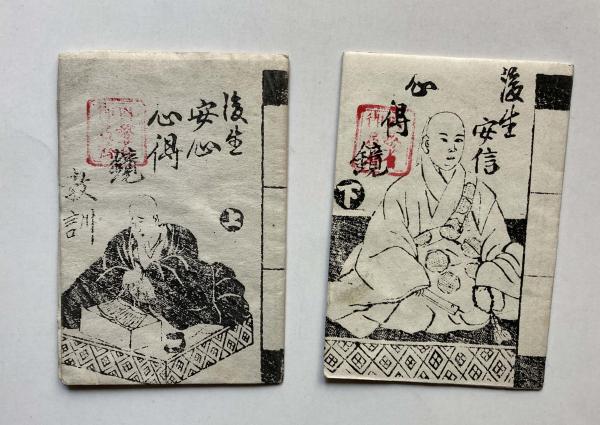 後生
安心
心得
鏡
教訓
上
後生
安信
心得
鏡
下